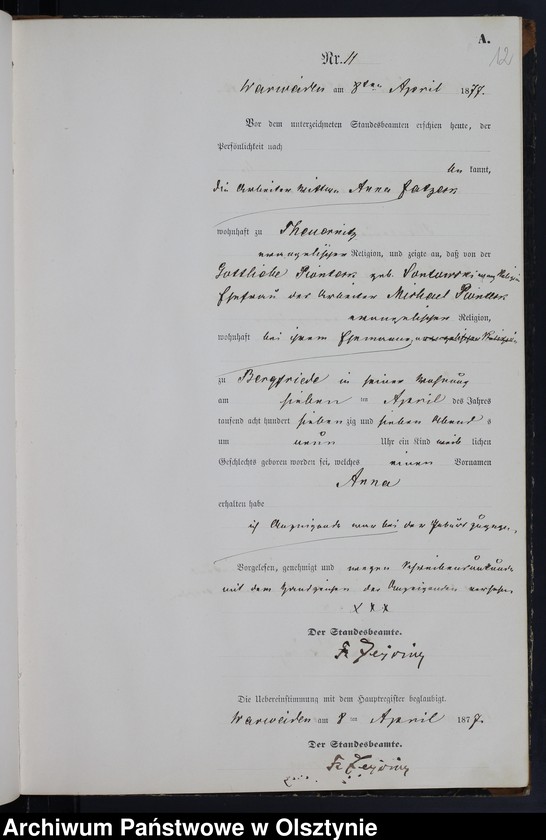 A.
12
Nr. 11
Warweiden am 8ten April 1877.
Vor dem unterzeichneten Standesbeamten erschien heute, der
Persönlichkeit nach
be kannt,
die Arbeiter Wittwe Anna
wohnhaft zu Theuernitz
evangelischer Religion, und zeigte an, daß von der
Gottliebe geb. evang Religion
Ehefrau des Arbeiter Michael
evangelischer Religion,
wohnhaft bei ihrem Ehemanne evangelischer Religion
zu Bergfriede in seiner Wohnung
am sieben ten April des Jahres
tausend acht hundert sieben zig und sieben Abend s
um neun Uhr ein Kind weib lichen
Geschlechts geboren worden sei, welches einen Vornamen
Anna
erhalten habe
Anzeigende war bei der Geburt zugegen,
Vorgelesen, genehmigt und wegen Schreibensunkunde
mit dem Handzeichen der Anzeigenden versehen
x x x
Der Standesbeamte.
Die Uebereinstimmung mit dem Hauptregister beglaubigt.
Warweiden am 8 ten April 1877.
Der Standesbeamte.
Archiwum Państwowe w Olsztynie